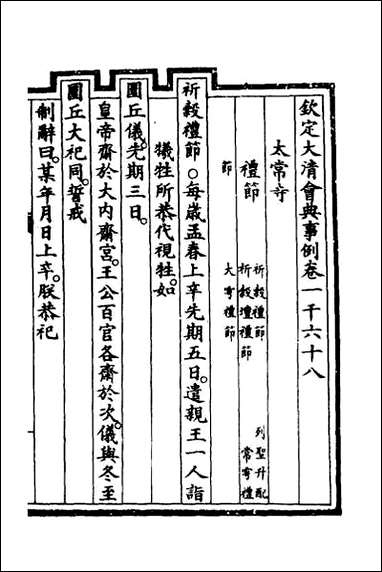 欽定大清會典事例卷一千六十八
太常寺
禮節 祈穀禮節 列聖升配
祈穀壇禮節 常雩禮
節 大雩禮節
祈穀禮節○每歲孟春上辛先期五日。遣親王一人詣
犧牲所恭代視牲。如
圜丘儀。先期三日。
皇帝齋於大內齋宮。王公百官各齋於次。儀與冬至
圜丘大祀同。誓戒
制辭曰。某年月日上辛。朕恭祀